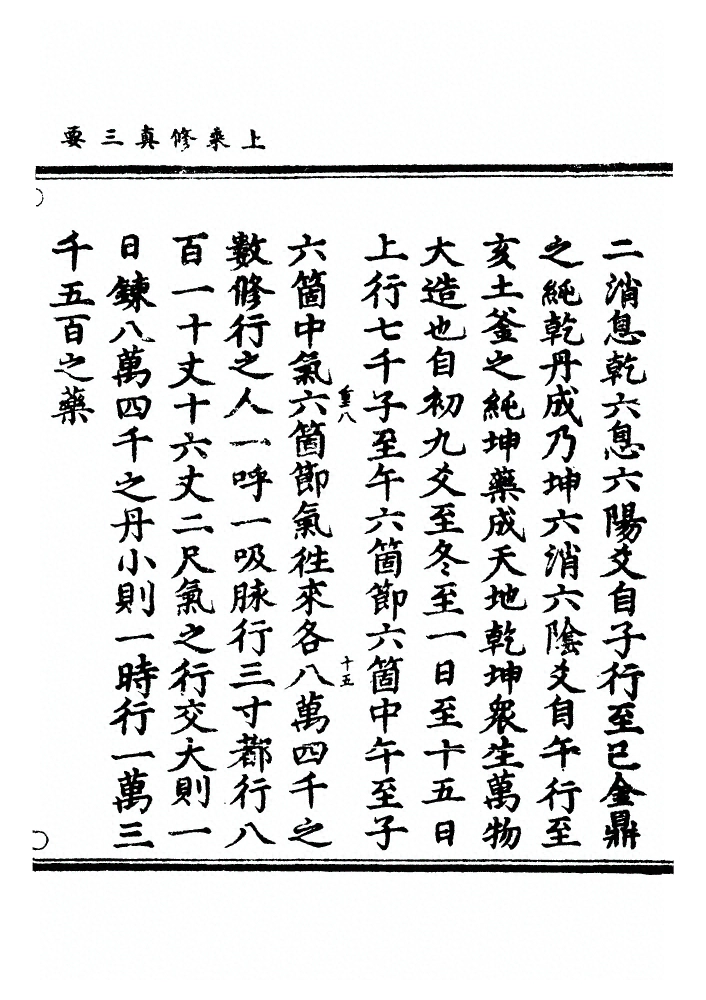 上乘修真三要
二消息乾六息六陽爻自子行至巳金鼎
之純乾丹成乃坤六消六陰爻自午行至
亥土釜之純坤藥成天地乾坤衆生萬物
大造也自初九爻至冬至一日至十五日
上行七千子至午六箇節六箇中午至子
重八
十五
六箇中氣六箇節氣徃來各八萬四千之
數修行之人一呼一吸脉行三寸都行八
百一十丈十六丈二尺氣之行交大則一
日鍊八萬四千之丹小則一時行一萬三
千五百之藥